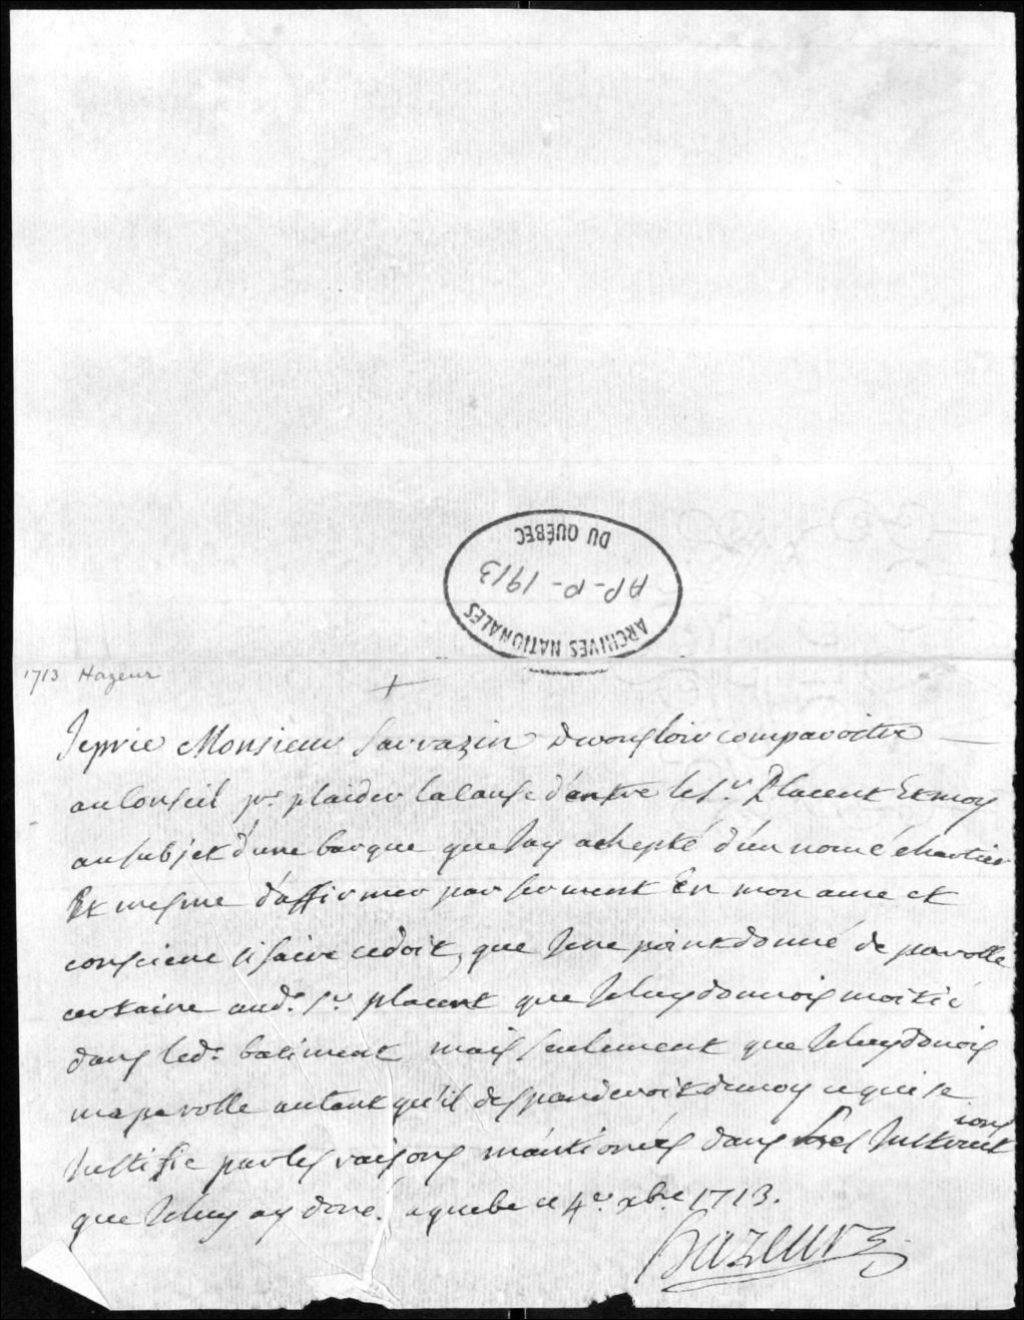 DU QUÉBEC
AP-P-1913
ARCHIVES NATIONALES
1713 Hazeur
+
Je prie Monsieur Sarrazin de vouloir comparoitre
au Conseil pr. plaider la cause d'entre le Sr. Placent Et moy
au subjet d'une barque que Jay achepté d'un nomé chartier
Et mesme d'affirmer par serment En mon ame et
conscience si faire ce doit, que Je ne point donné de parolle
certaine aud. Sr. placent que Je luy donnois moitié
dans led. batiment mais seulement que Je luy donois
ma parolle autant qu'il despanderoit de moy ce qui se
Justifie par les raisons mantionées dans les Instructions
que Je luy ay doné. a quebe ce 4e. xbre 1713.
Hazeur